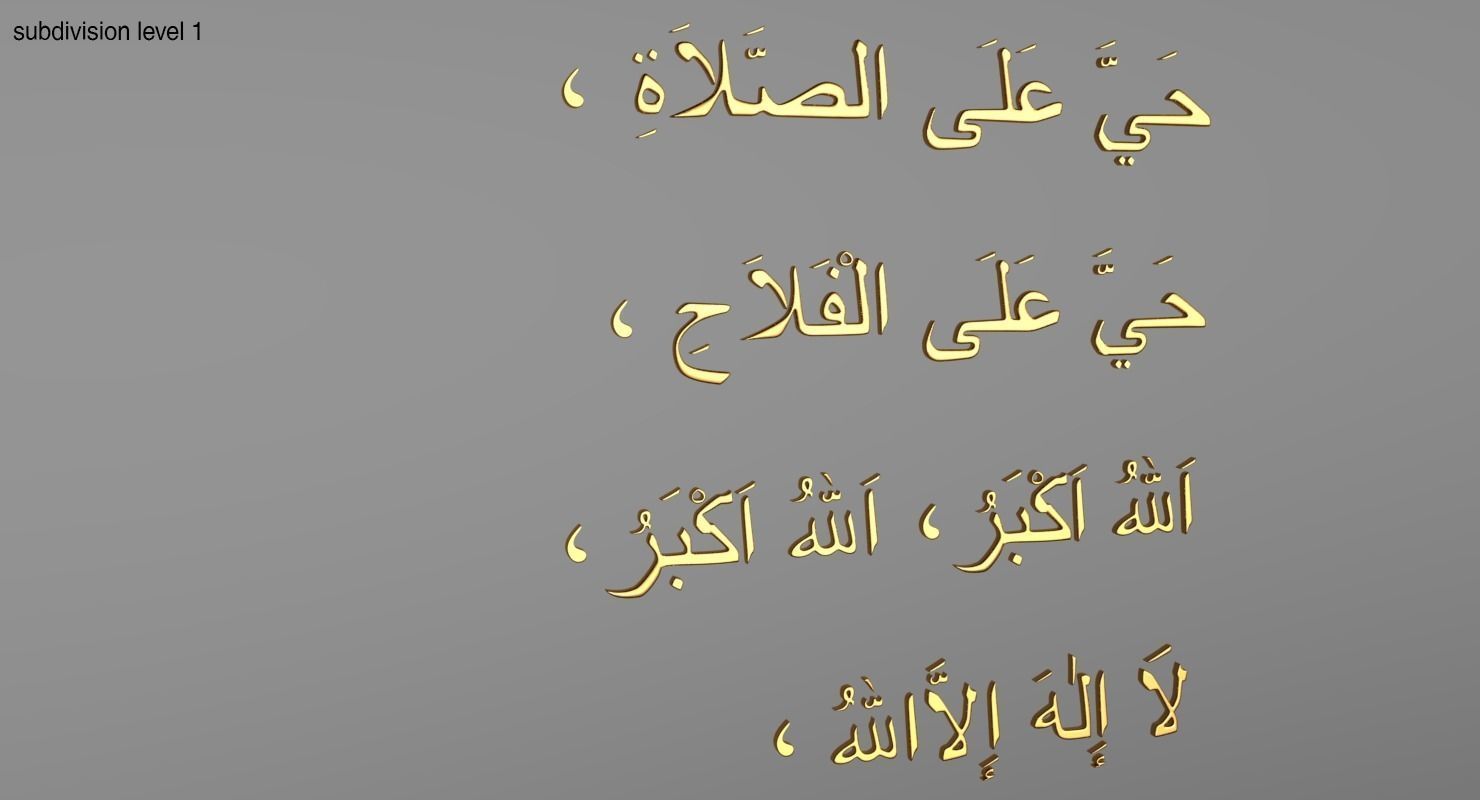 subdivision level 1
حَيَّ عَلَى الصَّلَاَةِ ،
حَيَّ عَلَى الْفَلاَحِ ،
اَللّٰهُ اَكْبَرُ ، اَللّٰهُ اَكْبَرُ ،
لاَ إِلٰهَ إِلاَّاللّٰهُ ،